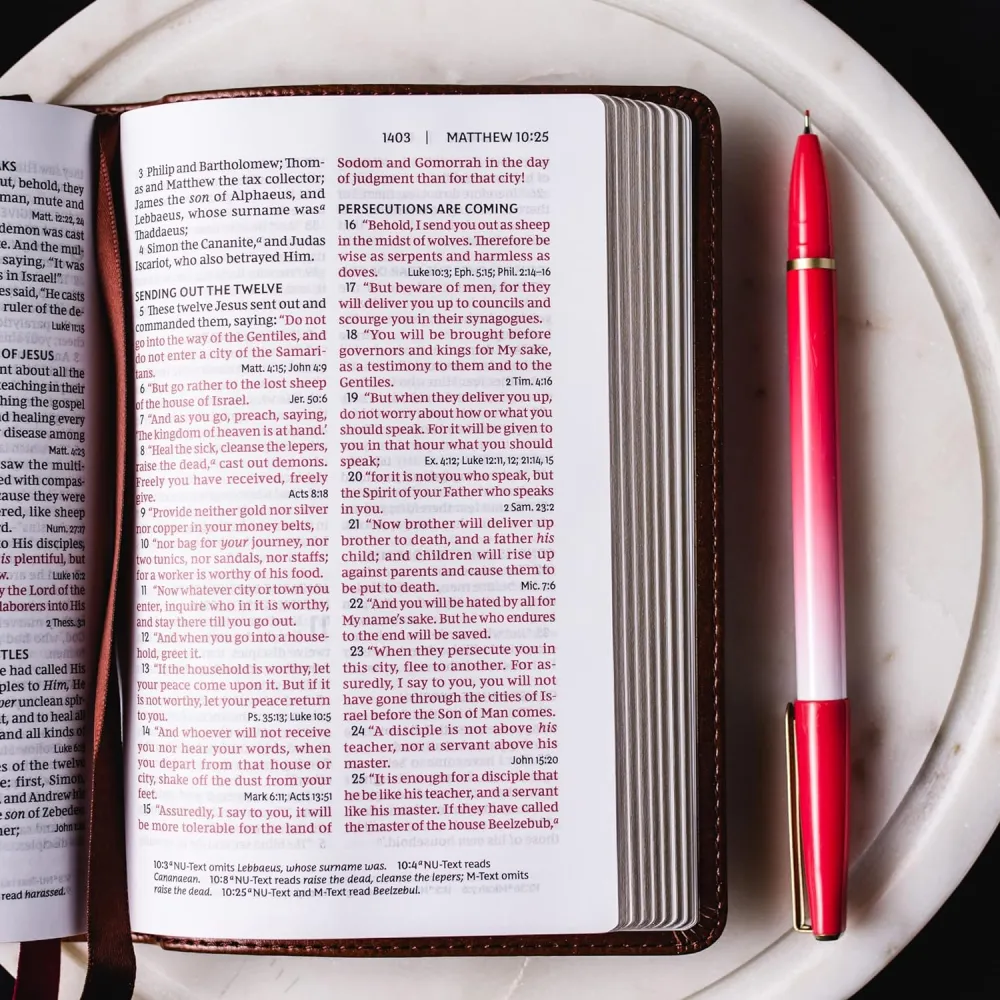 AKS
ut, behold, they
man, mute and
Matt. 12:22, 24
demon was cast
e. And the mul-
saying, “It was
s in Israel!”
es said, “He casts
ruler of the de-
Luke 11:15
OF JESUS
nt about all the
teaching in their
hing the gospel
d healing every
disease among
Matt. 4:23
saw the multi-
ed with compas-
cause they were
ered, like sheep
rd. Num. 27:17
to His disciples,
is plentiful, but
w. Luke 10:2
y the Lord of the
laborers into His
2 Thess. 3:1
TLES
e had called His
ples to Him, He
per unclean spir-
t, and to heal all
and all kinds of
Luke 6:13
es of the twelve
e: first, Simon,
and Andrew his
son of Zebedee
her; John 1:42
read harassed.
1403 | MATTHEW 10:25
3 Philip and Bartholomew; Thom-
as and Matthew the tax collector;
James the son of Alphaeus, and
Lebbaeus, whose surname wasᵃ
Thaddaeus;
4 Simon the Cananite,ᵃ and Judas
Iscariot, who also betrayed Him.
SENDING OUT THE TWELVE
5 These twelve Jesus sent out and
commanded them, saying: “Do not
go into the way of the Gentiles, and
do not enter a city of the Samari-
tans. Matt. 4:15; John 4:9
6 “But go rather to the lost sheep
of the house of Israel. Jer. 50:6
7 “And as you go, preach, saying,
‘The kingdom of heaven is at hand.’
8 “Heal the sick, cleanse the lepers,
raise the dead,ᵃ cast out demons.
Freely you have received, freely
give. Acts 8:18
9 “Provide neither gold nor silver
nor copper in your money belts,
10 “nor bag for your journey, nor
two tunics, nor sandals, nor staffs;
for a worker is worthy of his food.
11 “Now whatever city or town you
enter, inquire who in it is worthy,
and stay there till you go out.
12 “And when you go into a house-
hold, greet it.
13 “If the household is worthy, let
your peace come upon it. But if it
is not worthy, let your peace return
to you. Ps. 35:13; Luke 10:5
14 “And whoever will not receive
you nor hear your words, when
you depart from that house or
city, shake off the dust from your
feet. Mark 6:11; Acts 13:51
15 “Assuredly, I say to you, it will
be more tolerable for the land of
Sodom and Gomorrah in the day
of judgment than for that city!
PERSECUTIONS ARE COMING
16 “Behold, I send you out as sheep
in the midst of wolves. Therefore be
wise as serpents and harmless as
doves. Luke 10:3; Eph. 5:15; Phil. 2:14–16
17 “But beware of men, for they
will deliver you up to councils and
scourge you in their synagogues.
18 “You will be brought before
governors and kings for My sake,
as a testimony to them and to the
Gentiles. 2 Tim. 4:16
19 “But when they deliver you up,
do not worry about how or what you
should speak. For it will be given to
you in that hour what you should
speak; Ex. 4:12; Luke 12:11, 12; 21:14, 15
20 “for it is not you who speak, but
the Spirit of your Father who speaks
in you. 2 Sam. 23:2
21 “Now brother will deliver up
brother to death, and a father his
child; and children will rise up
against parents and cause them to
be put to death. Mic. 7:6
22 “And you will be hated by all for
My name’s sake. But he who endures
to the end will be saved.
23 “When they persecute you in
this city, flee to another. For as-
suredly, I say to you, you will not
have gone through the cities of Is-
rael before the Son of Man comes.
24 “A disciple is not above his
teacher, nor a servant above his
master. John 15:20
25 “It is enough for a disciple that
he be like his teacher, and a servant
like his master. If they have called
the master of the house Beelzebub,ᵃ
10:3 ᵃNU-Text omits Lebbaeus, whose surname was. 10:4 ᵃNU-Text reads
Cananaean. 10:8 ᵃNU-Text reads raise the dead, cleanse the lepers; M-Text omits
raise the dead. 10:25 ᵃNU-Text and M-Text read Beelzebul.